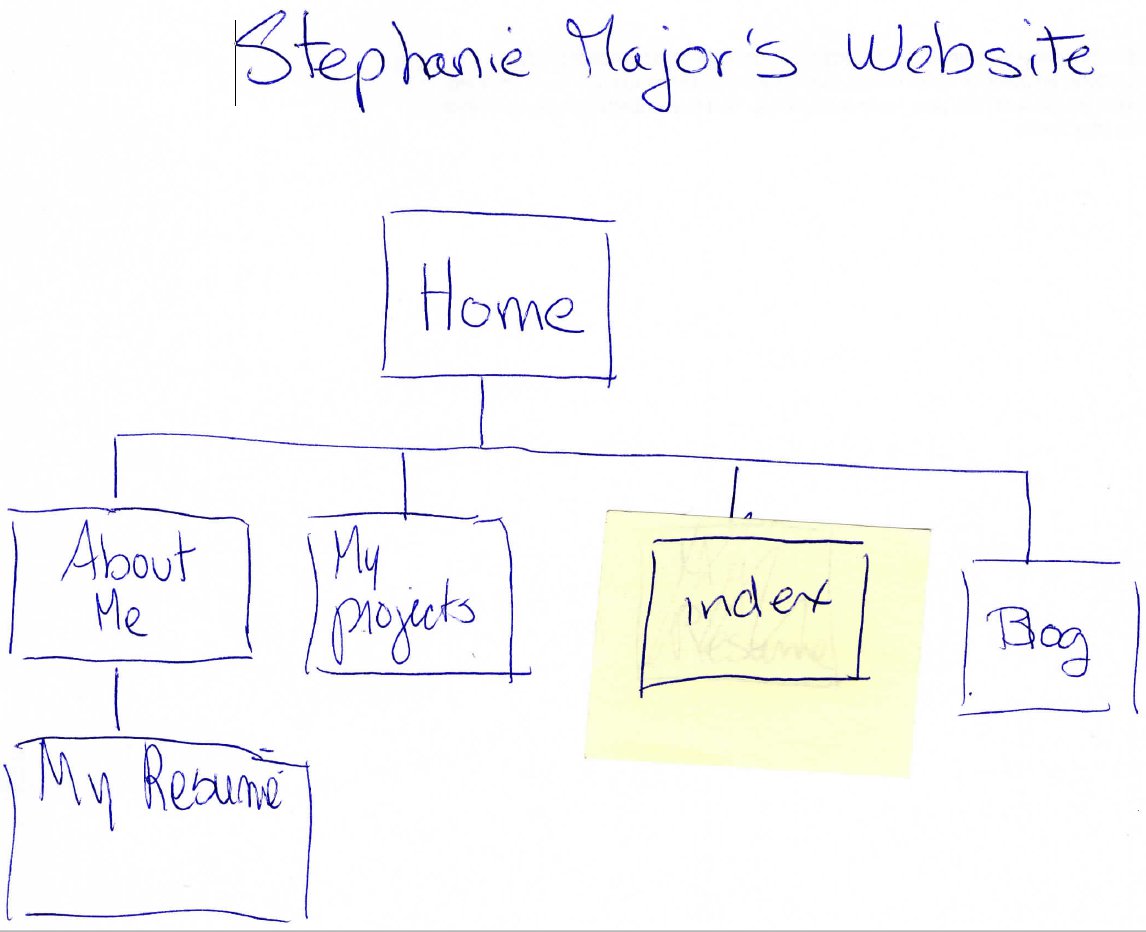 Stephanie Major's Website
Home
About
Me
My
projects
index
Blog
My Resumé